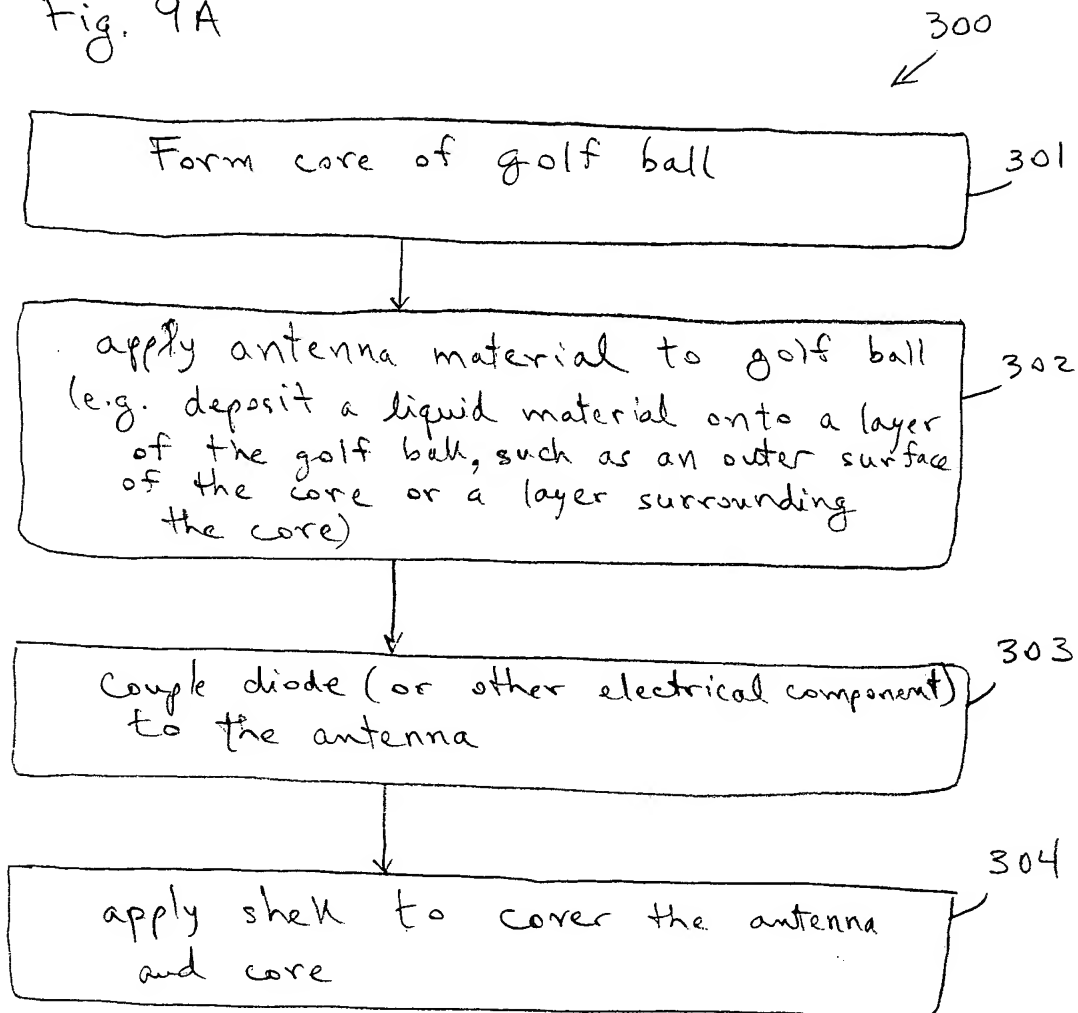 Fig. 9A
300
Form core of golf ball
301
apply antenna material to golf ball
(e.g. deposit a liquid material onto a layer
of the golf ball, such as an outer surface
of the core or a layer surrounding
the core)
302
Couple diode (or other electrical component)
to the antenna
303
apply shell to cover the antenna
and core
304